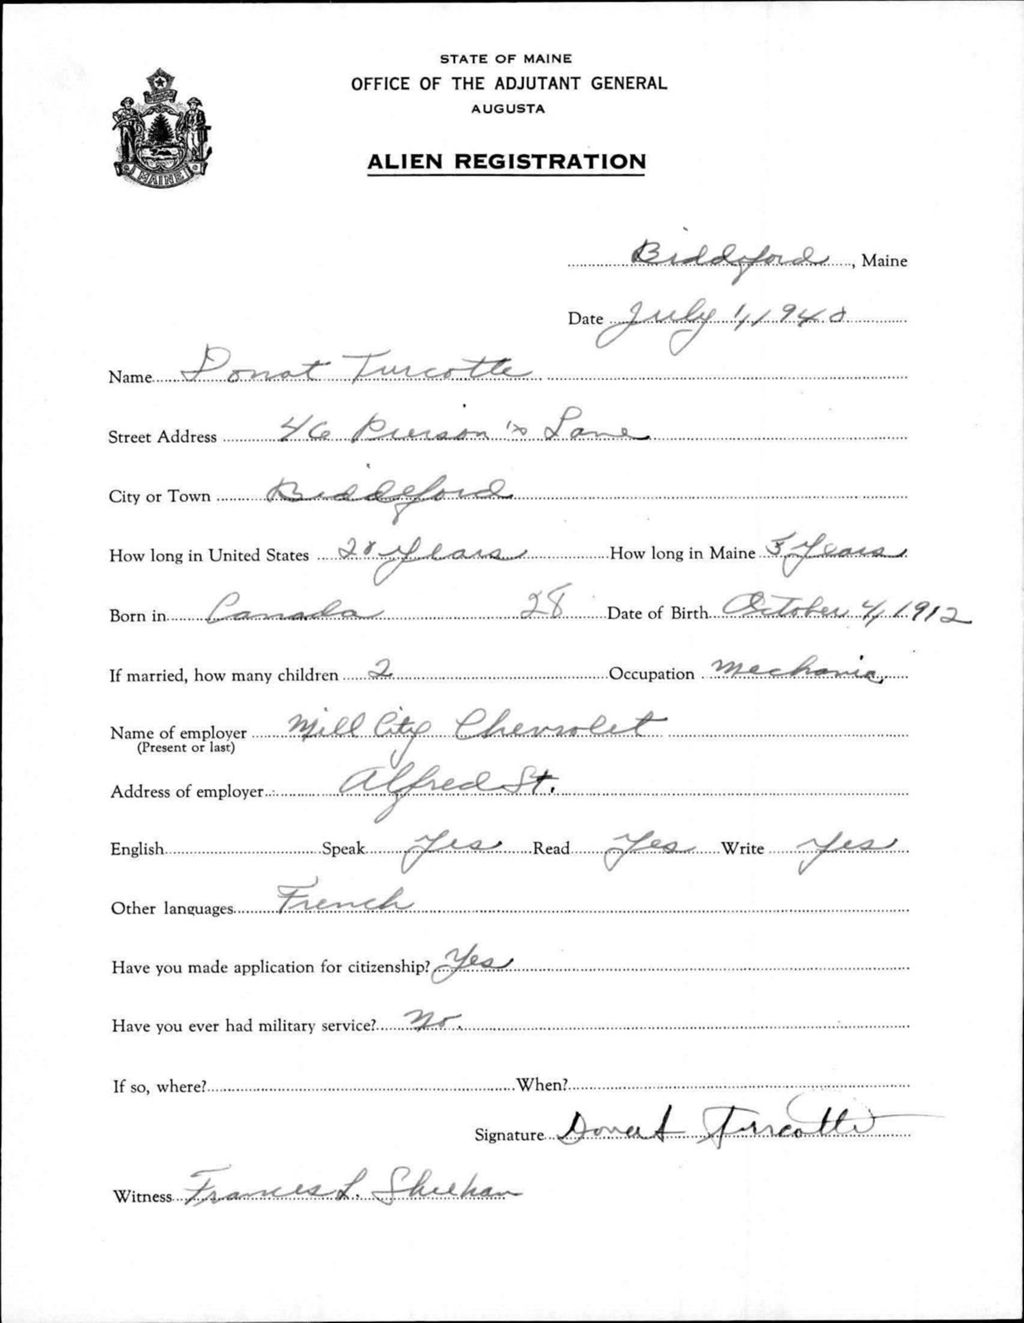 STATE OF MAINE
OFFICE OF THE ADJUTANT GENERAL
AUGUSTA
ALIEN REGISTRATION
MAINE
Biddeford, Maine
Date July 1, 1940
Name Donat Turcotte
Street Address 46 Pierson's Lane
City or Town Biddeford
How long in United States Years How long in Maine Years
Born in Canada 28 Date of Birth October 4, 1912
If married, how many children 2 Occupation Mechanic
Name of employer Mill City Chevrolet
(Present or last)
Address of employer Alfred St.
English Speak Yes Read Yes Write Yes
Other languages French
Have you made application for citizenship? Yes
Have you ever had military service? No.
If so, where? When?
Signature Donat Turcotte
Witness Frances L. Sheehan